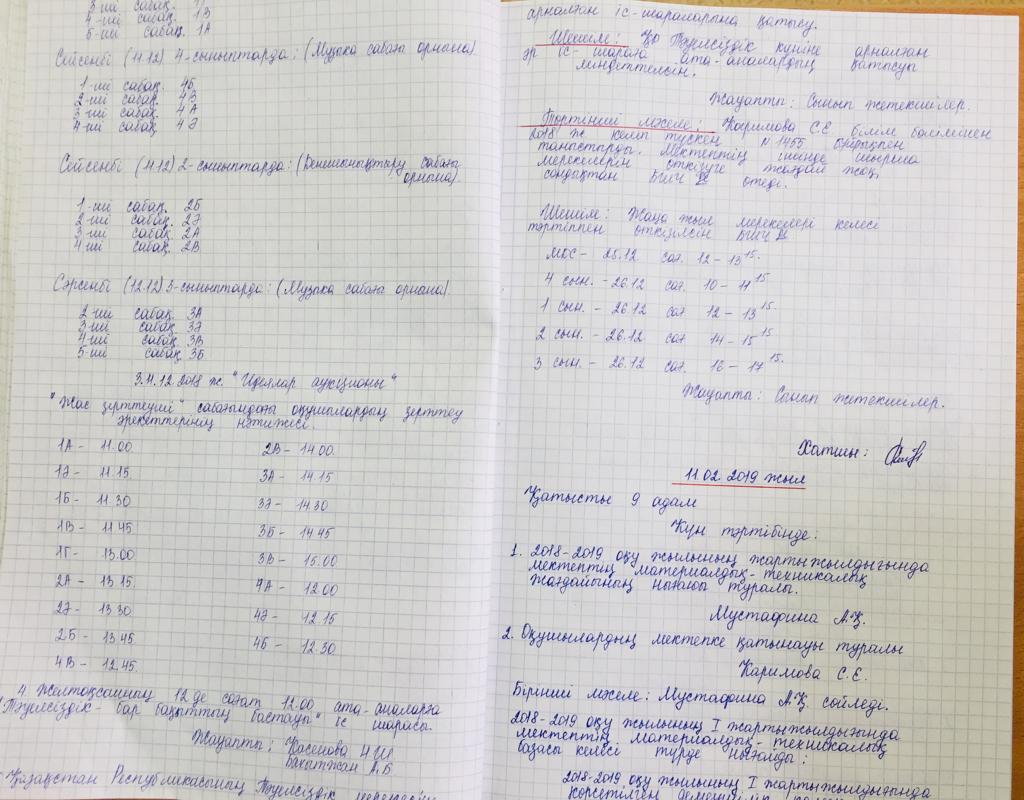 3-ий сабақ. 1Ә
4-ий сабақ. 1В
5-ий сабақ. 1А
Сейсенбі (11.12) 4-сыныптарда: (Музыка сабағы орнына)
1-ий сабақ. 4Б
2-ий сабақ. 4В
3-ий сабақ. 4А
4-ий сабақ. 4Ә
Сейсенбі (11.12) 2-сыныптарда: (Денешынықтыру сабағы
орнына).
1-ий сабақ. 2Б
2-ий сабақ. 2Ә
3-ий сабақ. 2А
4-ий сабақ. 2В
Сәрсенбі (12.12) 3-сыныптарда: (Музыка сабағы орнына).
2-ий сабақ. 3А
3-ий сабақ. 3Ә
4-ий сабақ. 3В
5-ий сабақ. 3Б
3. 11.12.2018 ж. "Идеялар аукционы"
"Жас зерттеуші" сабағындағы оқушылардың зерттеу
әрекеттерінің нәтижесі.
1А - 11.00 2В - 14.00.
1Ә - 11.15 3А - 14.15
1Б - 11.30 3Ә - 14.30
1В - 11.45 3Б - 14.45
1Г - 13.00 3В - 15.00
2А - 13.15 4А - 12.00
2Ә - 13.30 4Ә - 12.15
2Б - 13.45 4Б - 12.30
4В - 12.45
4. Желтоқсанның 12 де сағат 12.00 ата-аналарға
"Тәуелсіздік - бар бақыттың бастауы" іс шарасы.
Жауапты: Касенова Н.Ш.
Бахытжан А.Б
Қазақстан Республикасының Тәуелсіздік мерекесіне
арналған іс-шараларына қатысу.
Шешім: ҚР Тәуелсіздік күніне арналған
әр іс-шараға ата-аналардың қатысуы
міндеттелсін.
Жауапты: Сынып жетекшілер.
Төртінші мәселе: Каримова С.Е. білім бөлімінен
2018 ж келіп түскен N 1455 бұйрықпен
таныстырды. Мектептің ішінде шырша
мерекелерін өткізуге жағдай жоқ,
сондықтан БШЧ өтеді.
Шешім: Жаңа жыл мерекелері келесі
тәртіппен өткізілсін БШЧ
МКС - 25.12 сағ. 12 - 13 15.
4 сын. - 26.12 сағ 10 - 11 15
1 сын. - 26.12 сағ 12 - 13 15.
2 сын. - 26.12 сағ 14 - 15 15
3 сын - 26.12 сағ. 16 - 17 15.
Жауапты: Сынып жетекшілер.
Хатшы:
11.02.2019 жыл
Қатысты 9 адам
Күн тәртібінде:
1. 2018-2019 оқу жылының жартыжылдығында
мектептің материалдық-техникалық
жағдайының нығаюы туралы.
Мустафина А.Қ.
2. Оқушылардың мектепке қатынауы туралы
Каримова С.Е.
Бірінші мәселе: Мустафина А.Қ. сөйледі.
2018-2019 оқу жылының I жартыжылдығында
мектептің материалдық-техникалық
базасы келесі түрде нығайды:
2018-2019 оқу жылының I жартыжылдығында
көрсетілген